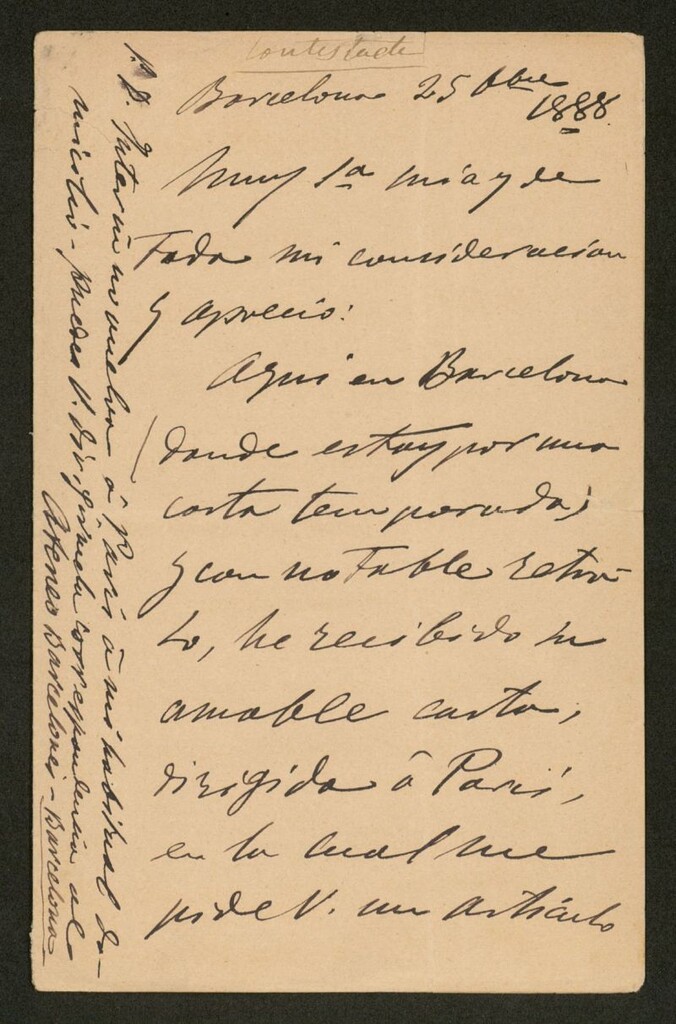 contestada
Barcelona 25 8bre
1888.
Muy Sra mia y de
toda mi consideracion
y aprecio:
Aqui en Barcelona
donde estoy por una
corta temporada,
y con notable retra-
so, he recibido su
amable carta,
dirigida á Paris,
en la cual me
pide V. un artículo
P. D. Interin no vuelva á Paris á mi habitual do-
micilio - puede V. dirigirme la correspondencia al
Ateneo Barcelonés - Barcelona